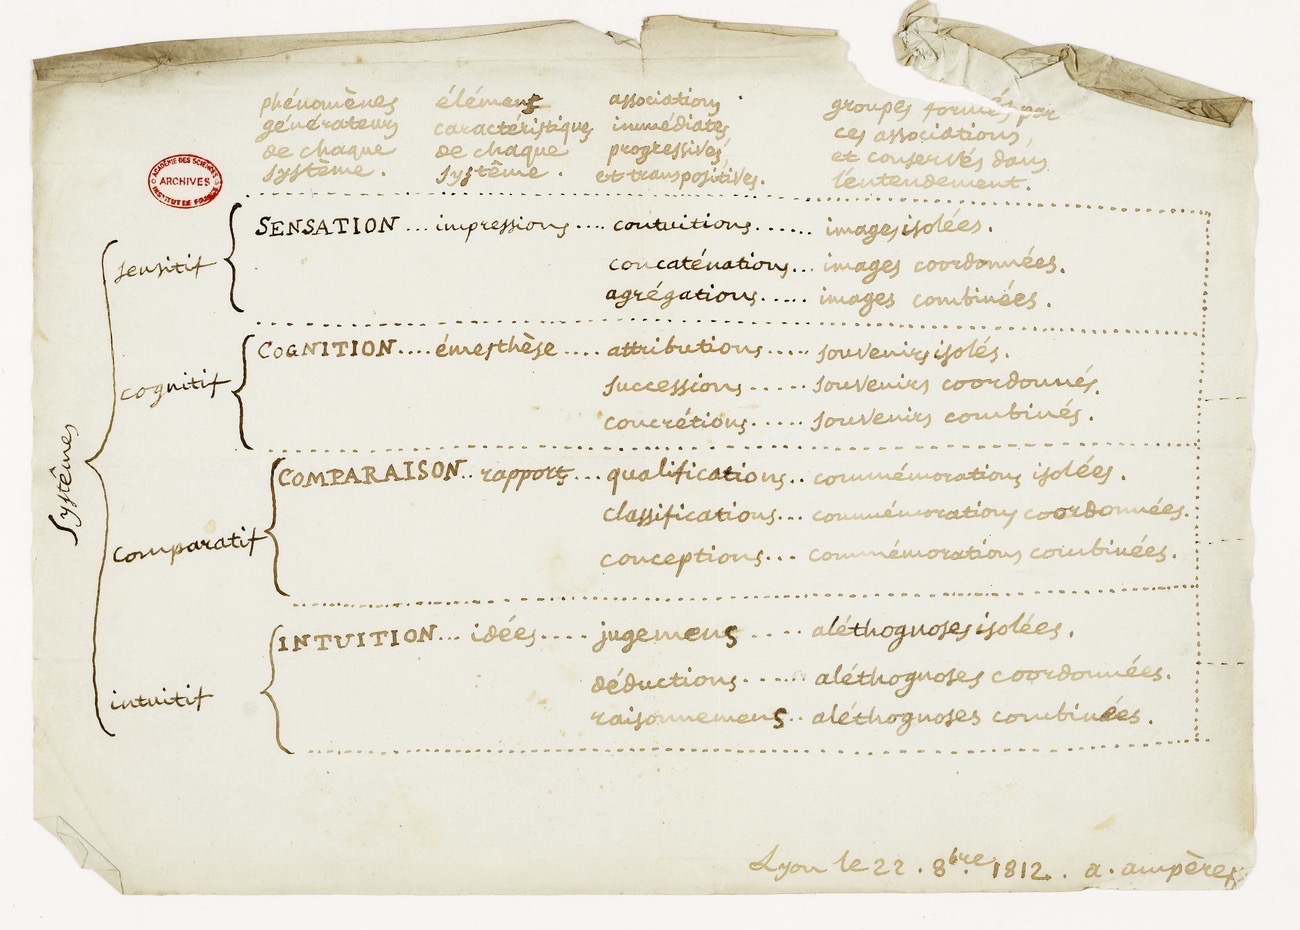 phénomènes générateurs de chaque système.
éléments caractéristiques de chaque système.
associations immédiates, progressives, et transpositives.
groupes formés par ces associations, et conservés dans l'entendement.
ACADÉMIE DES SCIENCES
ARCHIVES
INSTITUT DE FRANCE
Systêmes
sensitif
SENSATION ... impressions .... contuitions ...... images isolées.
concaténations... images coordonnées.
agrégations..... images combinées.
cognitif
COGNITION.... émesthèse .... attributions ..... souvenirs isolés.
successions ..... souvenirs coordonnés.
concrétions..... souvenirs combinés.
comparatif
COMPARAISON.. rapports... qualifications.. commémorations isolées.
classifications... commémorations coordonnées.
conceptions... commémorations combinées.
intuitif
INTUITION... idées.... jugemens ..... aléthognoses isolées.
déductions ..... aléthognoses coordonnées.
raisonnemens.. aléthognoses combinées.
Lyon le 22. 8bre. 1812. a. ampère